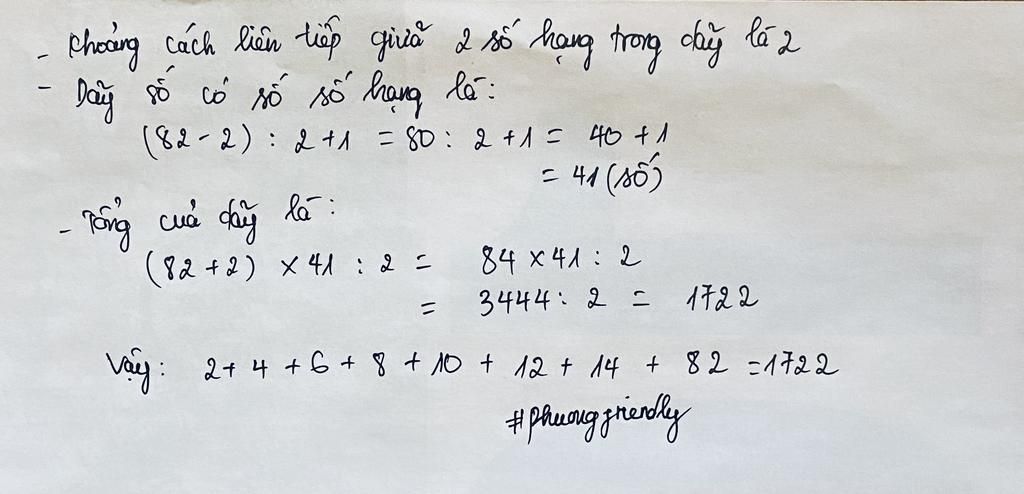 - Khoảng cách liên tiếp giữa 2 số hạng trong dãy là 2
- Dãy số có số số hạng là:
(82 - 2) : 2 + 1 = 80 : 2 + 1 = 40 + 1
= 41 (số)
- Tổng của dãy là:
(82 + 2) × 41 : 2 = 84 × 41 : 2
= 3444 : 2 = 1722
Vậy: 2 + 4 + 6 + 8 + 10 + 12 + 14 + 82 = 1722
#phuongfriendly